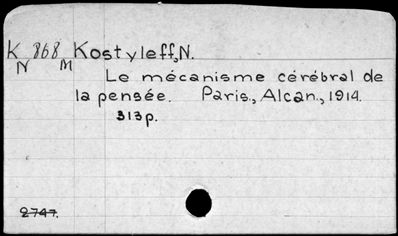 K 868 Kostyleff, N.
N M
Le mécanisme cérébral de
la pensée. Paris., Alcan., 1914.
313p.
2747.